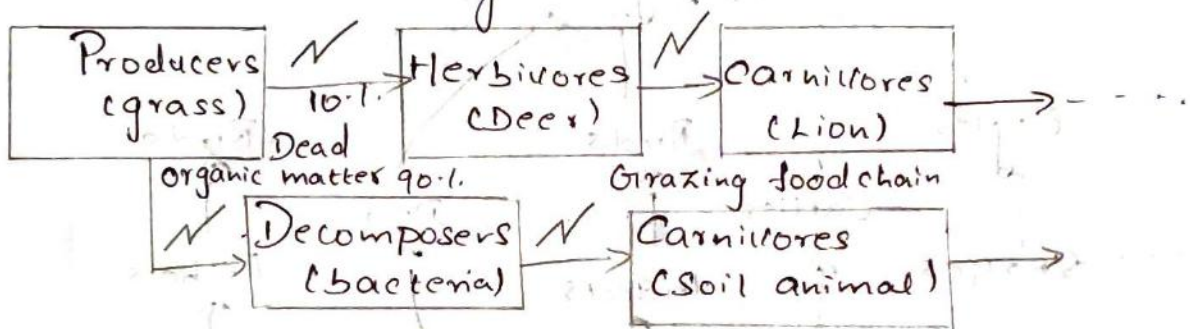 Producers
(grass)
10%
Herbivores
(Deer)
Carnivores
(Lion)
Dead
organic matter 90%
Grazing food chain
Decomposers
(bacteria)
Carnivores
(Soil animal)